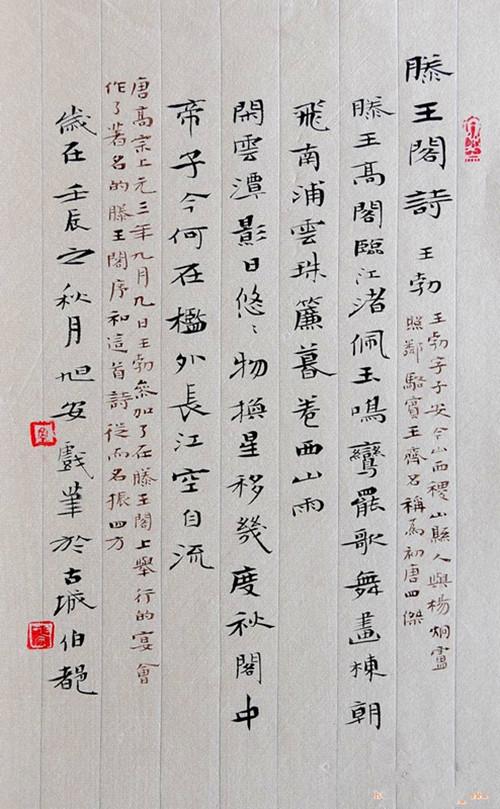 滕王閣詩 王勃
王勃字子安今山西稷山縣人與楊炯盧
照鄰駱賓王齊名稱為初唐四傑
滕王高閣臨江渚佩玉鳴鸞罷歌舞畫棟朝
飛南浦雲珠簾暮卷西山雨
閑雲潭影日悠〻物換星移幾度秋閣中
帝子今何在檻外長江空自流
唐高宗上元三年九月九日王勃參加了在滕王閣上舉行的宴會
作了著名的滕王閣序和這首詩從而名振四方
歲在壬辰之秋月旭安戲筆於古城伯都